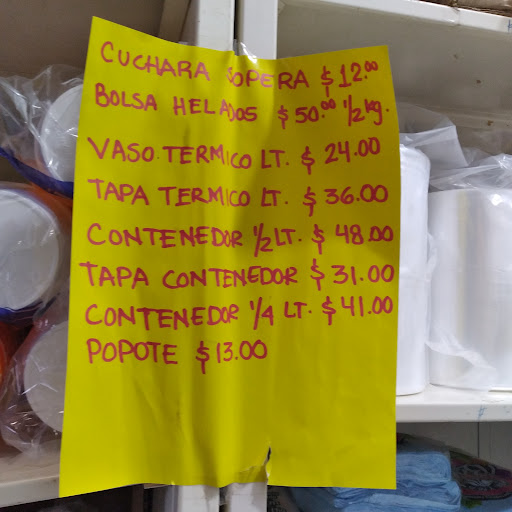 CUCHARA SOPERA $12.00
BOLSA HELADOS $50.00 1/2 kg.
VASO TERMICO LT. $24.00
TAPA TERMICO LT. $36.00
CONTENEDOR 1/2 LT. $48.00
TAPA CONTENEDOR $31.00
CONTENEDOR 1/4 LT. $41.00
POPOTE $13.00